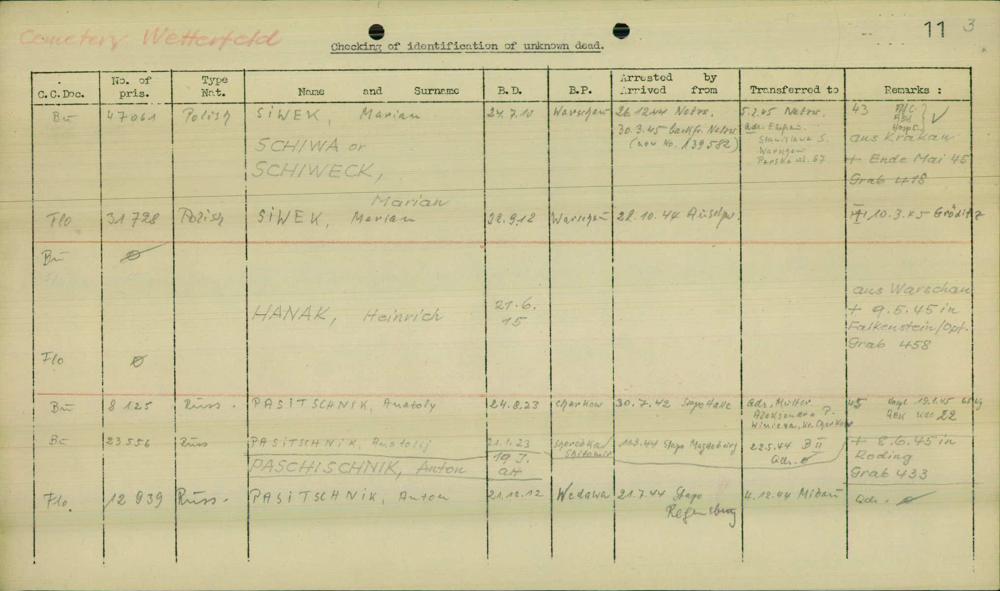 Cemetery Wetterfeld
11 3
Checking of identification of unknown dead.
C.C.Doc. No. of pris. Type Nat. Name and Surname B.D. B.P. Arrested by Arrived from Transferred to Remarks :
Bu 47061 Polish SIWEK, Marian 24.7.10 Warschau 26.12.44 Natzw. 5.2.45 Natzw. 43
30.3.45 Natzw.
(new No. 139582)
Stanislawa S.
Warschau
67
SCHIWA or
SCHIWECK,
Marian
aus Krakau
+ Ende Mai 45
Grab 418
Flo 31728 Polish SIWEK, Marian 22.9.12 Warschau 28.10.44 + 10.3.45 Gröditz
Bu ø
HANAK, Heinrich 21.6.
15
aus Warschau
+ 9.5.45 in
Falkenstein/Opf.
Grab 458
Flo ø
Bu 8125 Russ. PASITSCHNIK, Anatoly 24.8.23 Charkow 30.7.42 Stapo Halle Adr. Mutter
Aleksandra P.
45
22
Bu 23556 Russ PASITSCHNIK, Anatolij 21.1.23 Shitomir Stapo Magdeburg 22.5.44 B II
Adr. ø
PASCHISCHNIK, Anton 19 J.
alt
+ 8.6.45 in
Roding
Grab 433
Flo. 12939 Russ. PASITSCHNIK, Anton 21.12.12 Wedawa 21.7.44 Stapo
Regensburg
4.12.44 Adr. ø